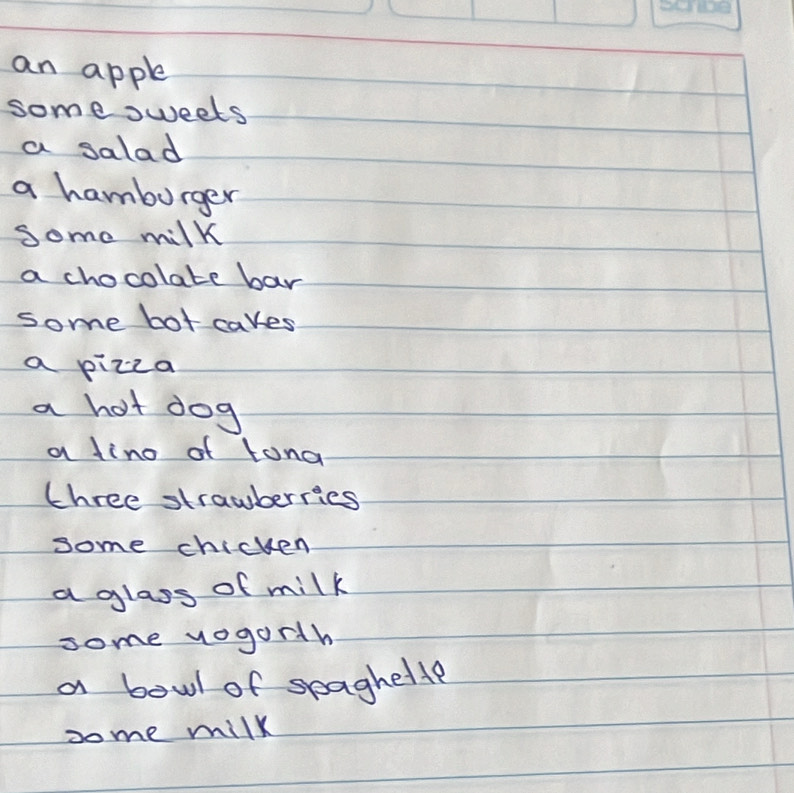 Scribe
an apple
some sweets
a salad
a hamburger
some milk
a chocolate bar
some hot cakes
a pizza
a hot dog
a tino of tuna
three strawberries
some chicken
a glass of milk
some yogorth
a bowl of spaghette
some milk